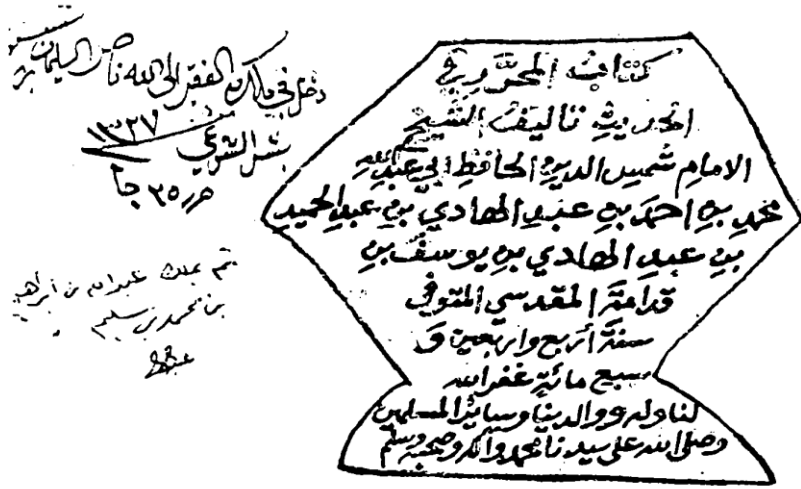 كتاب المحرر في
الحديث تأليف الشيخ
الامام شمس الدين الحافظ ابي عبد الله
محمد بن احمد بن عبد الهادي بن عبد الحميد
بن عبد الهادي بن يوسف بن
قدامة المقدسي المتوفى
سنة أربع واربعين و
سبع مائة غفر الله
لنا وله ووالدينا وسائر المسلمين
وصلى الله على سيدنا محمد واله وصحبه وسلم
دخل في ملك الفقير الى الله ناصر السليمان
بشرا الشرعي ١٣٢٧
٢٥ جا
ثم بملك عبد الله بن ابراهيم
بن محمد بن سليم